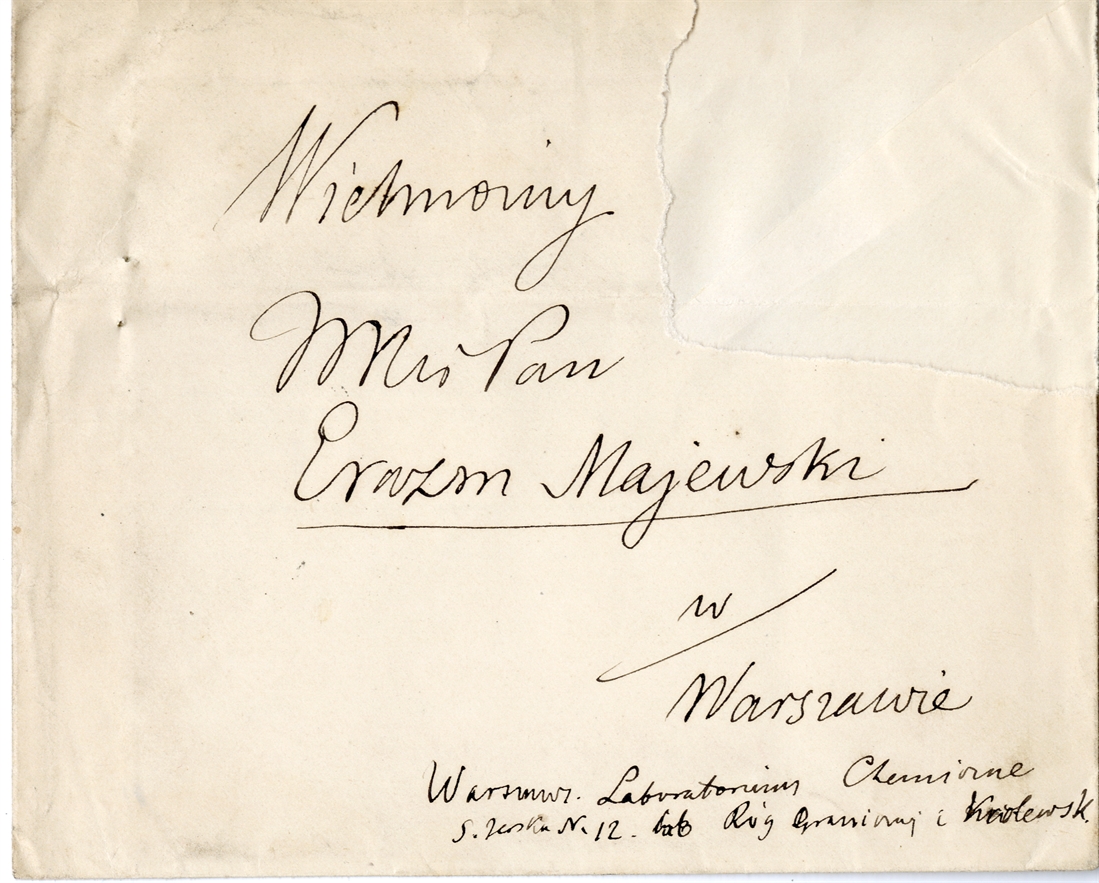 Wielmożny
Pan
Erazm Majewski
w
Warszawie
Warszaws. Laboratorium Chemiczne
N. 12. lub Róg Granicznej i Królewsk.